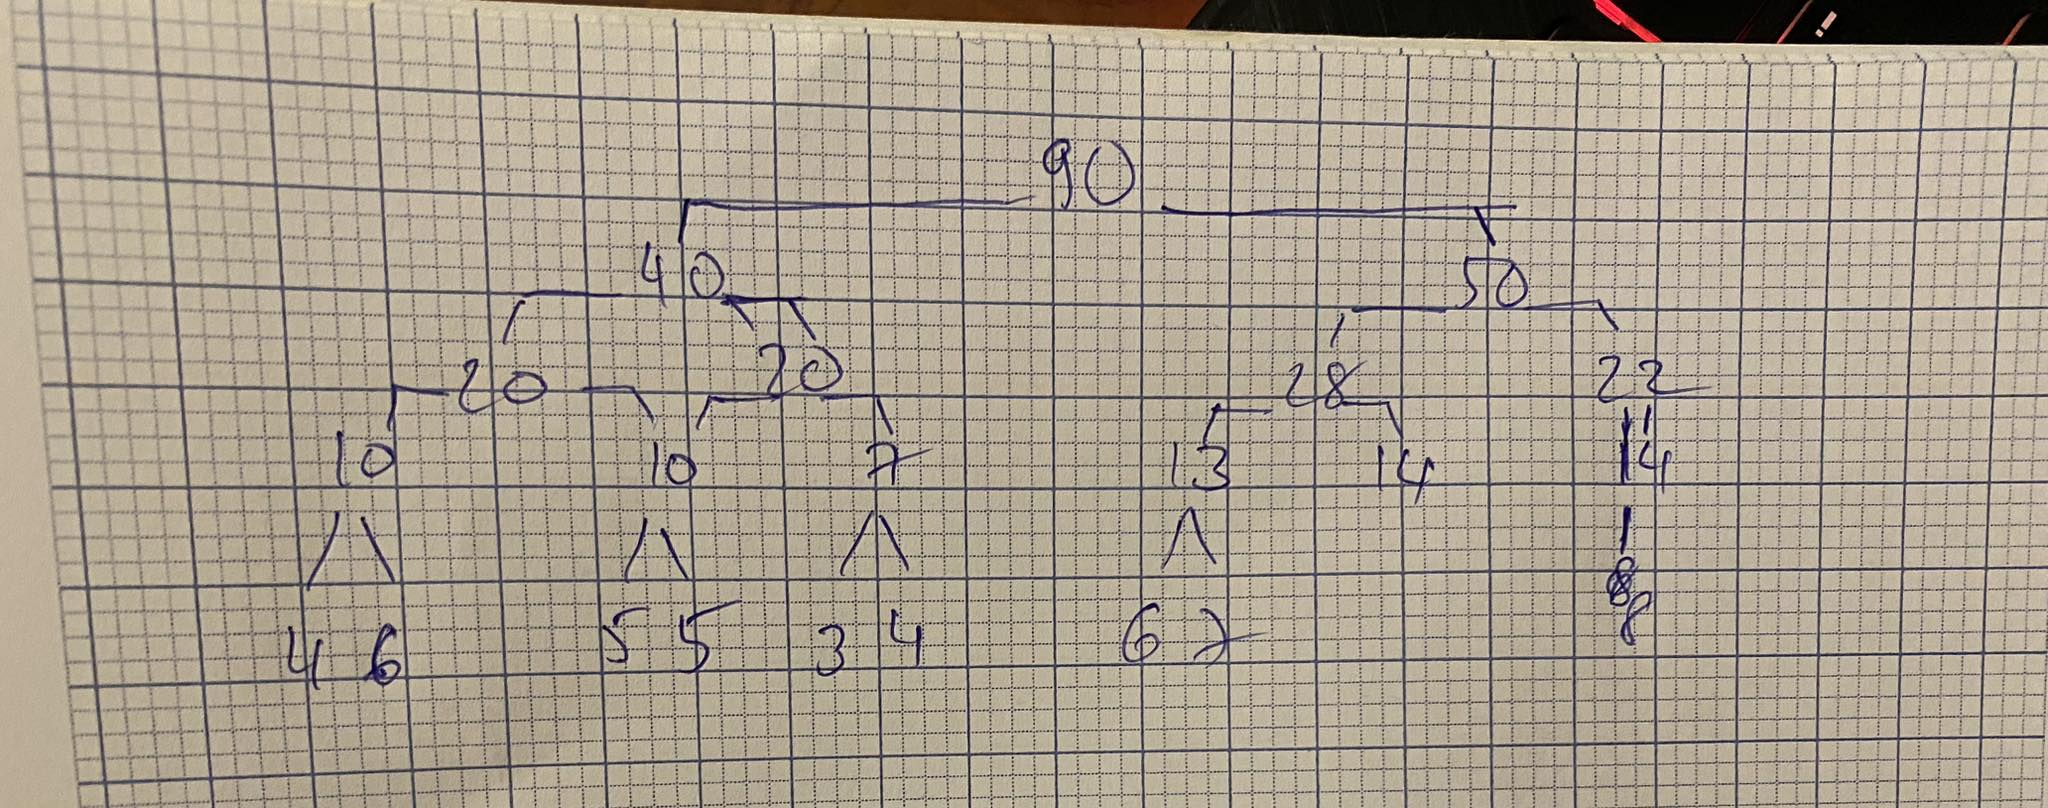 90
40 50
20 20 28 22
10 10 7 13 14 14
4 6 5 5 3 4 6 7 8